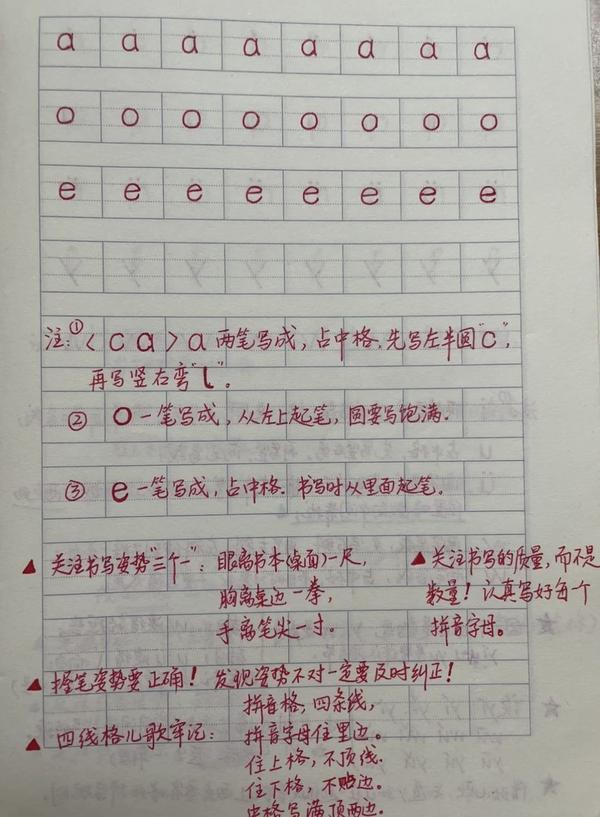 a a a a a a a a
o o o o o o o o
e e e e e e e e
注:①〈c a〉a 两笔写成，占中格.先写左半圆"c"，
再写竖右弯"乚"。
② o 一笔写成，从左上起笔，圆要写饱满.
③ e 一笔写成，占中格.书写时从里面起笔.
▲ 关注书写姿势"三个一"：眼离书本(桌面)一尺，
胸离桌边一拳，
手离笔尖一寸.
▲ 关注书写的质量，而不是
数量！认真写好每个
拼音字母.
▲ 握笔姿势要正确！发现姿势不对一定要及时纠正！
▲ 四线格儿歌牢记：
拼音格，四条线，
拼音字母住里边。
住上格，不顶线.
住下格，不贴边.
中格写满顶两边.